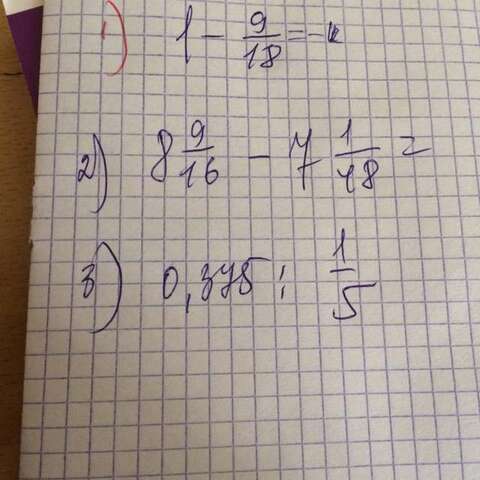 1) 1 - 9/18 =
2) 8 9/16 - 7 1/48 =
3) 0,375 : 1/5